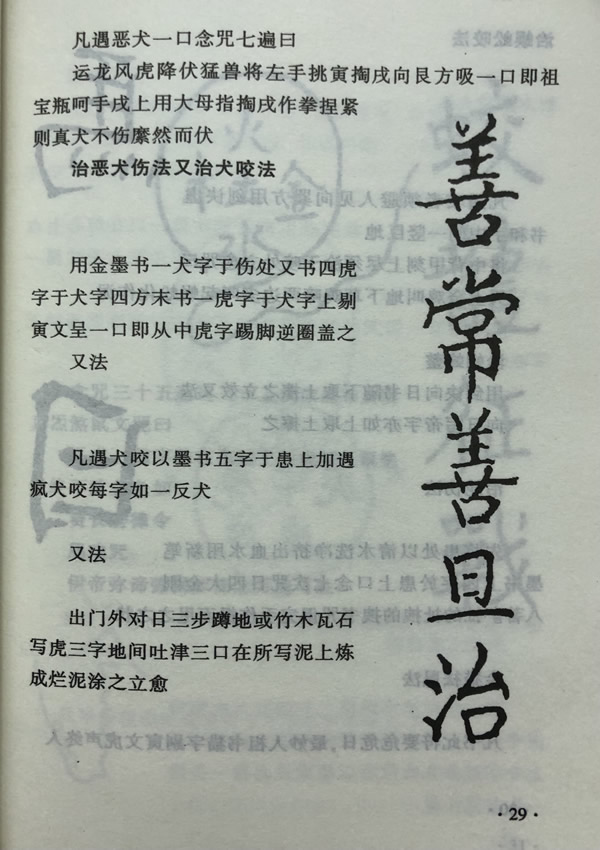 凡遇恶犬一口念咒七遍曰
运龙风虎降伏猛兽将左手挑寅掏戌向艮方吸一口即祖
宝瓶呵手戌上用大母指掏戌作拳捏紧
则真犬不伤縻然而伏
治恶犬伤法又治犬咬法
用金墨书一犬字于伤处又书四虎
字于犬字四方末书一虎字于犬字上剔
寅文呈一口即从中虎字踢脚逆圈盖之
又法
凡遇犬咬以墨书五字于患上加遇
疯犬咬每字如一反犬
又法
出门外对日三步蹲地或竹木瓦石
写虎三字地间吐津三口在所写泥上炼
成烂泥涂之立愈
常
旦
治
·29·